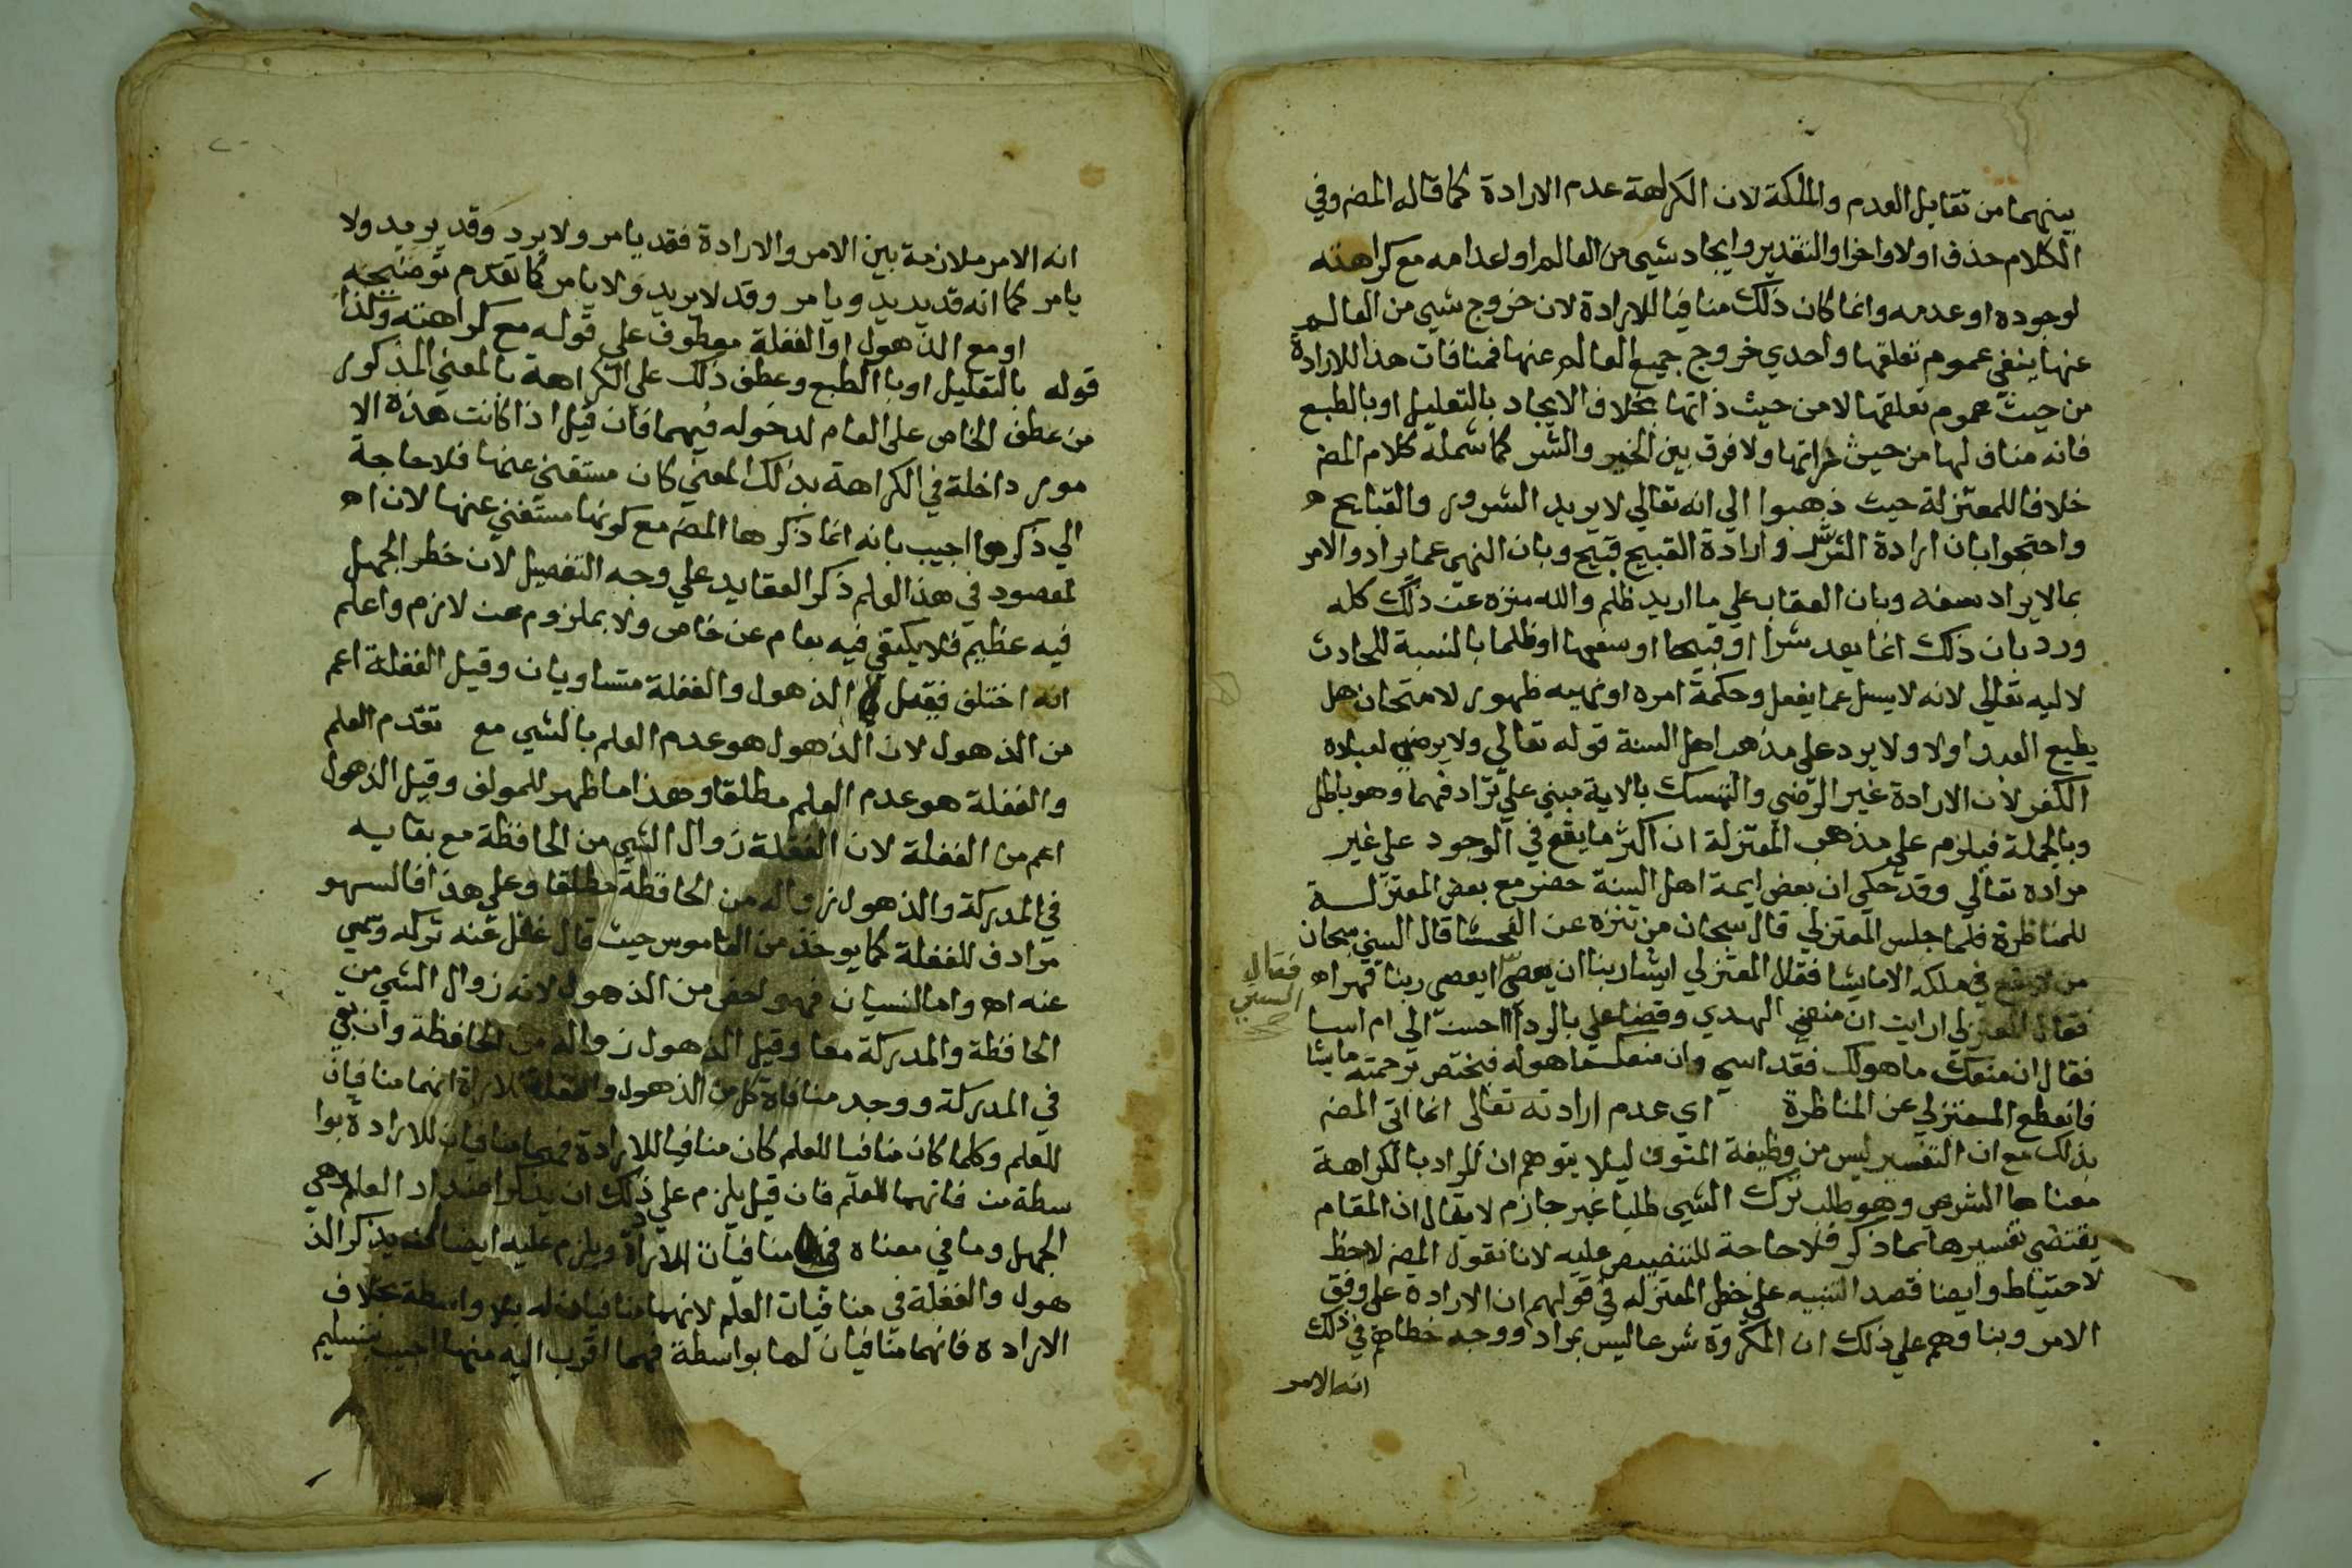 بينهما من تقابل العدم والملكة لان الكراهة عدم الارادة كما قاله المص وفي
الكلام حذف اولا واخرا والتقدير وايجاد شيى من العالم او اعدامه مع كراهته
لوجوده او عدمه وانما كان ذلك منافيا للارادة لان خروج شيى من العالم
عنها ينفي عموم تعلقها واحدي خروج جميع العالم عنها فمنافات هذا للارادة
من حيث عموم تعلقها لا من حيث ذاتها بخلاف الايجاد بالتعليل او بالطبع
فانه مناف لها من حيث ذاتها ولا فرق بين الخير والشر كما شمله كلام المص
خلافا للمعتزلة حيث ذهبوا الي انه تعالي لا يريد الشرور والقبايح
واحتجوا بان ارادة الشر شر وارادة القبيح قبيح وبان النهي عما يراد والامر
بما لا يراد سفه وبان العقاب علي ما اريد ظلم والله منزه عن ذلك كله
ورد بان ذلك انما يعد شرا او قبيحا او سفها او ظلما بالنسبة للحادث
لا ليه تعالي لانه لا يسل عما يفعل وحكمة امره او نهيه ظهور لامتحان هل
يطيع العبد اولا ولا يرد علي مذهب اهل السنة قوله تعالي ولا يرضي لعباده
الكفر لان الارادة غير الرضي والتمسك بالاية مبني علي ترادفهما وهو باطل
وبالجملة فيلزم علي مذهب المعتزلة ان اكثر ما يقع في الوجود علي غير
مراده تعالي وقد حكي ان بعض ايمة اهل السنة حضر مع بعض المعتزلة
للمناظرة فلما جلس المعتزلي قال سبحان من تنزه عن الفحشا قال السني سبحان
من لا يقع في ملكه الا ما يشا فقال المعتزلي ايشا ربنا ان يعصي ايعصي ربنا قهرا اه
فقال السني
فقال المعتزلي ارايت ان منعني الهدي وقضا علي بالردا احسن الي ام اسا
فقال ان منعك ما هو لك فقد اسي وان منعك ما هو له فيختص برحمته ما يشا
فانقطع المعتزلي عن المناظرة اي عدم ارادته تعالي انما اتي المص
بذلك مع ان التفسير ليس من وظيفة المتون ليلا يتوهم ان المراد بالكراهة
معناها الشرعي وهو طلب ترك الشيى طلبا غير جازم لا يقال ان المقام
يقتضي تفسيرها بما ذكر فلا حاجة للتنصيص عليه لانا نقول المص لاحظ
لاحتياط وايضا قصد التنبيه علي خطا المعتزله في قولهم ان الارادة علي وفق
الامر وبناوهم علي ذلك ان المكروة شرعا ليس بمراد ووجه خطاهم في ذلك
انه الامر
انه الامر ملازمة بين الامر والارادة فقد يامر ولا يرد وقد يريد ولا
يامر كما انه قد يريد ويامر وقد لا يريد ولا يامر كما تقدم توضيحه
او مع الذهول او الغفلة معطوف علي قوله مع كراهته وكذا
قوله بالتعليل او بالطبع وعطف ذلك علي الكراهة بالمعني المذكور
من عطف الخاص علي العام لدخوله فيهما فان قيل اذا كانت هذه الا
مور داخلة في الكراهة بذلك المعني كان مستغني عنها فلا حاجة
الي ذكرها اجيب بانه انما ذكرها المص مع كونها مستغني عنها لان اه
لمقصود في هذا العلم ذكر العقايد علي وجه التفصيل لان خطر الجهل
فيه عظيم فلا يكتفي فيه بعام عن خاص ولا بملزوم عن لازم واعلم
انه اختلف فقيل الذهول والغفلة متساويان وقيل الغفلة اعم
من الذهول لان الذهول هو عدم العلم بالشيى مع تقدم العلم
والغفلة هو عدم العلم مطلقا وهذا ما ظهر للمولف وقيل الذهول
اعم من الغفلة لان الغفلة زوال الشيى من الحافظة مع بقايه
في المدركة والذهول زواله من الحافظة مطلقا وعلي هذا فالسهو
مرادف للغفلة كما يوخذ من القاموس حيث قال غفل عنه تركه وسهي
عنه اه واما النسيان فهو اخص من الذهول لانه زوال الشيى من
الحافظة والمدركة معا وقيل الذهول زواله من الحافظة وان بقي
في المدركة ووجد منافاة كل من الذهول والغفلة للارادة انهما منافيان
للعلم وكلما كان منافيا للعلم كان منافيا للارادة فهما منافيان للارادة بوا
سطة من فاتهما للعلم فان قيل يلزم علي ذلك ان يذكر اضداد العلم وهي
الجهل وما في معناه في منافيات الارادة ويلزم عليه ايضا يذكر الذ
هول والغفلة في منافيات العلم لانهما منافيان له بلا واسطة بخلاف
الارادة فانهما منافيان لها بواسطة فهما اقرب اليه منها اجيب بتسليم